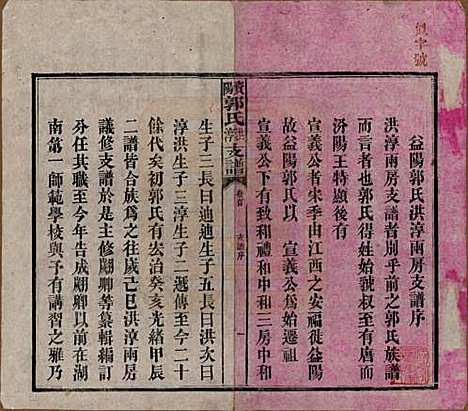 益陽郭氏洪淳兩房支譜序
洪淳兩房支譜者別乎前之郭氏族譜
而言者也郭氏得姓始於虢叔至有唐而
汾陽王特顯後有
宣義公者宋季由江西之安福徙益陽
故益陽郭氏以 宣義公爲始遷祖
宣義公下有致和中和三房中和
生子三長曰迪迪生子五長曰洪次曰
淳洪生子三淳生子二遞傳至今二十
餘代矣初郭氏有宏治癸亥光緒甲辰
二譜皆合族爲之往歲己巳洪淳兩房
議修支譜於是主修翽卿等纂輯編訂
分任其職至今年告成翽卿以前在湖
南第一師範學校與予有講習之雅乃
郭氏洪淳支譜
卷首
支譜序
一